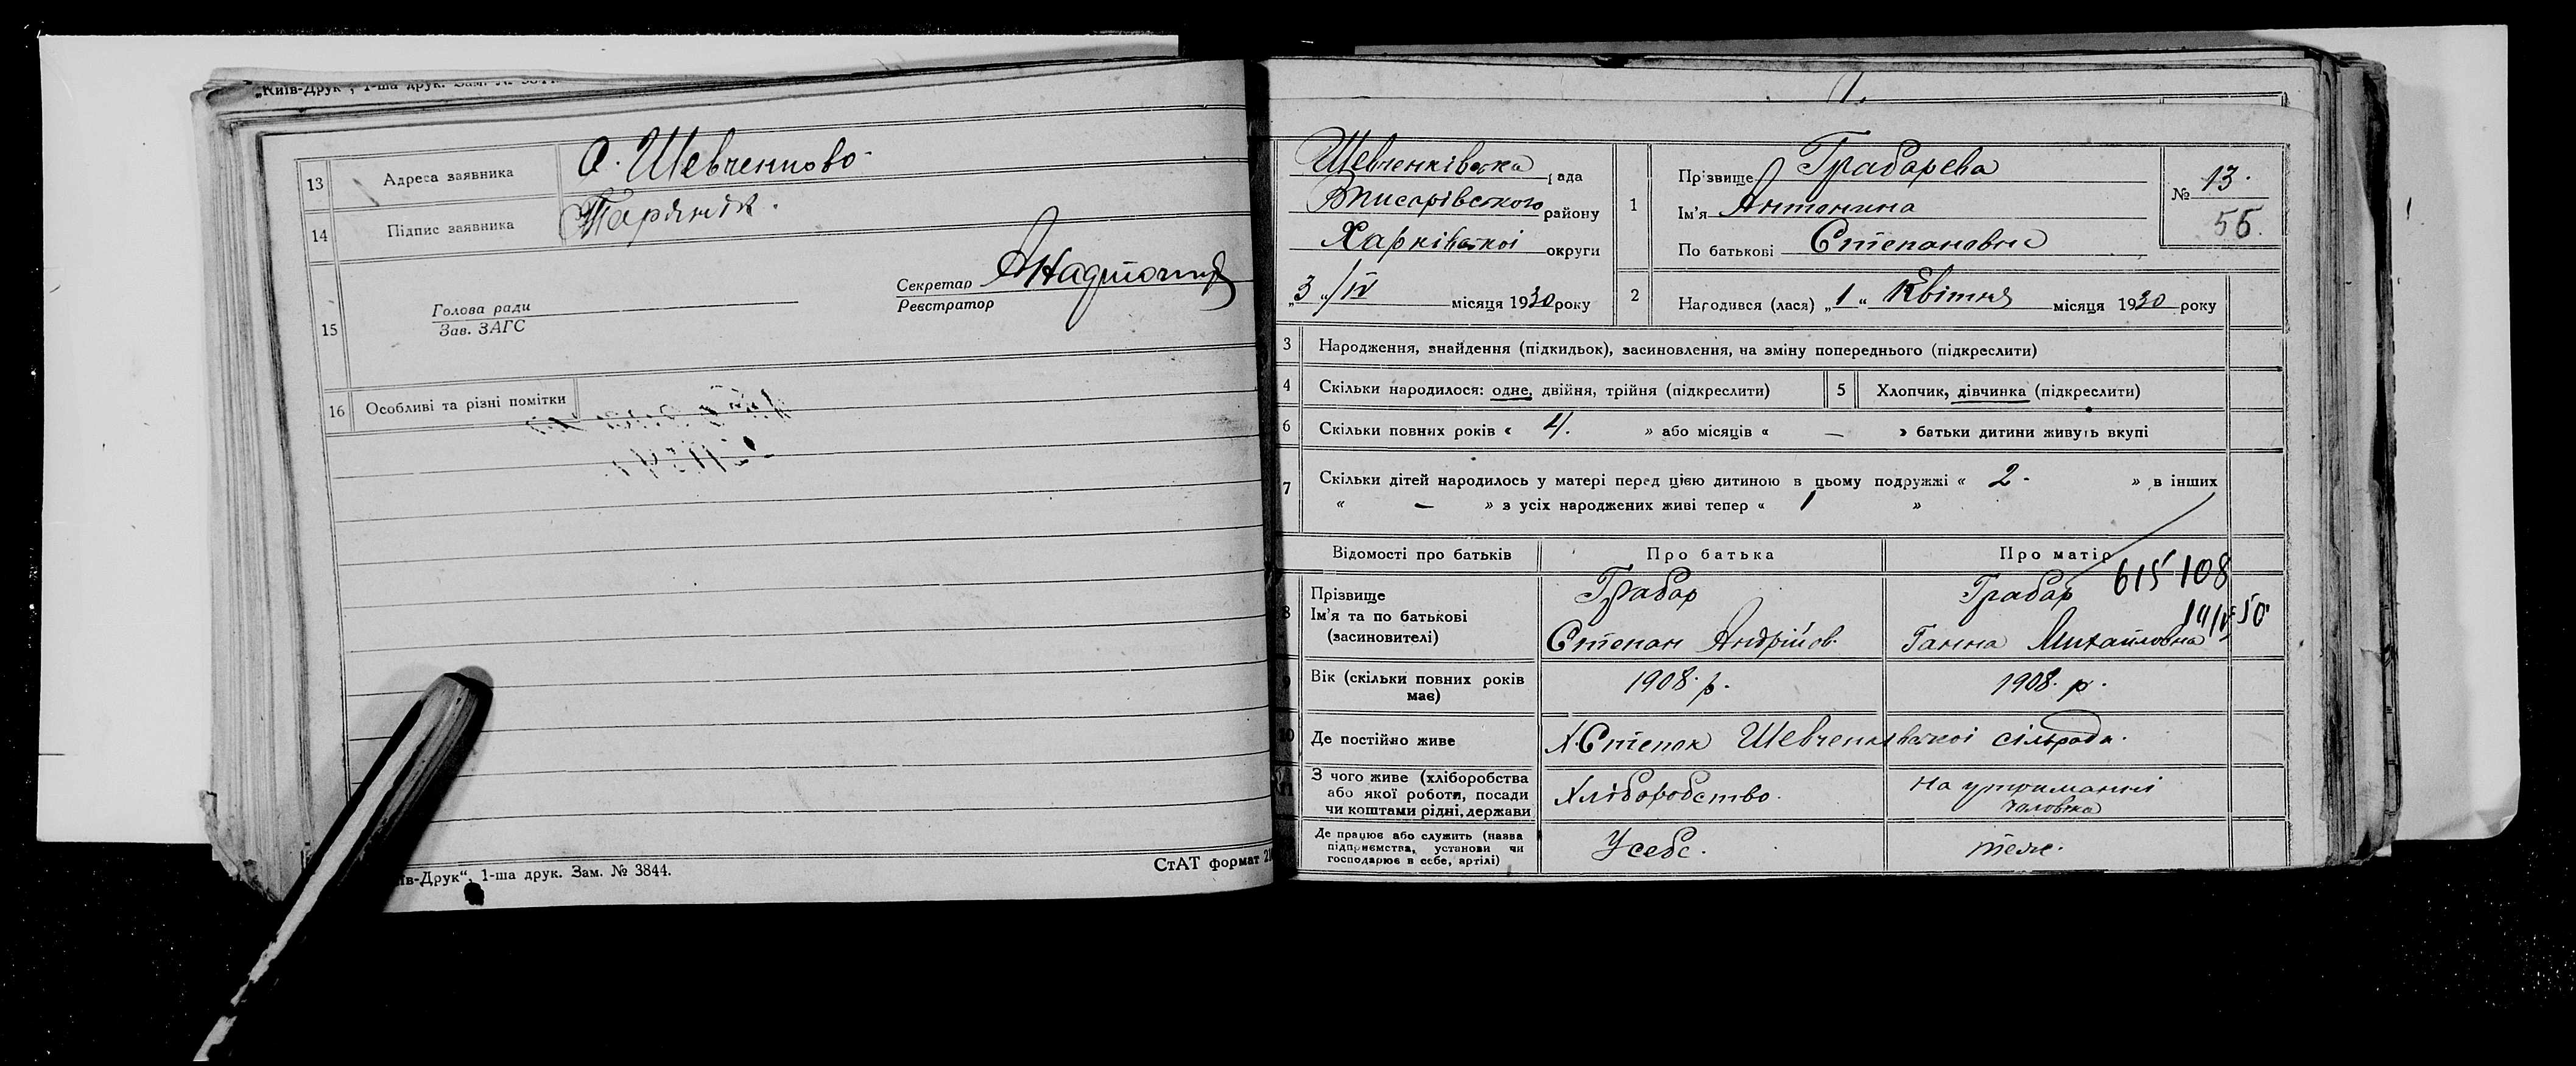 „Київ-Друк", 1-ша друк. Зам. №
13 Адреса заявника С. Шевченково
14 Підпис заявника
15 Голова ради
Зав. ЗАГС
Секретар
Реєстратор
16 Особливі та різні помітки
ів-Друк", 1-ша друк. Зам. № 3844.
СтАТ формат
Шевченківська рада
району
Харківської округи
„3"/IV місяця 1930 року
1 Прізвище Грабарева
Ім'я Антонина
По батькові Степановна
№ 13.
2 Народився (лася) „1" Квітня місяця 1930 року
3 Народження, знайдення (підкидьок), засиновлення, на зміну попереднього (підкреслити)
4 Скільки народилося: одне, двійня, трійня (підкреслити)
5 Хлопчик, дівчинка (підкреслити)
6 Скільки повних років « 4. » або місяців « — » батьки дитини живуть вкупі
7 Скільки дітей народилось у матері перед цією дитиною в цьому подружжі « 2 - » в інших
« — » з усіх народжених живі тепер « 1 »
Відомості про батьків Про батька Про матір
615108
8 Прізвище Грабар Грабар
Ім'я та по батькові
(засиновителі) Степан Андрійов. Ганна Михайловна
9 Вік (скільки повних років має) 1908. р. 1908. р.
10 Де постійно живе Х. Степок Шевченківської сільради.
11 З чого живе (хліборобства
або якої роботи, посади
чи коштами рідні, держави Хліборобство. На утриманні чоловіка
Де працює або служить (назва
підприємства, установи чи
господарює в себе, артілі) У себе. теж.